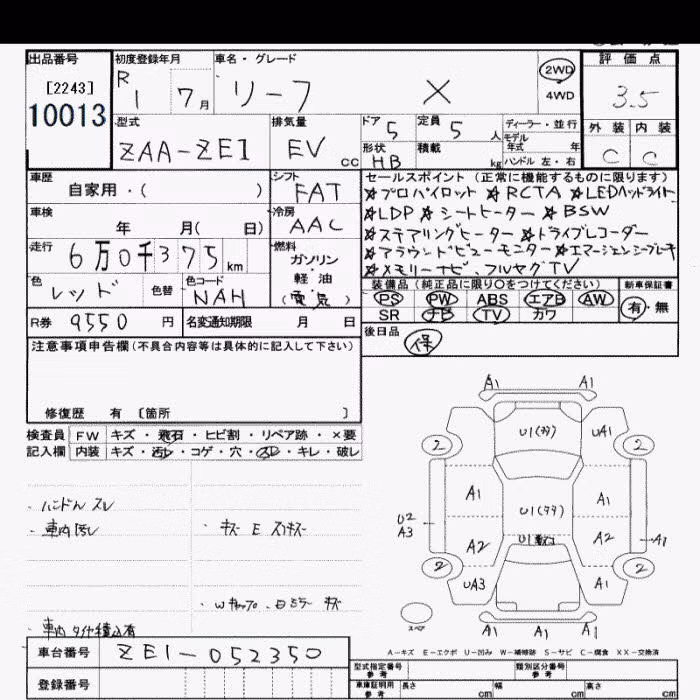 出品番号 初度登録年月 車名・グレード 2WD 評価点
[2243] R
10013 1 7月 リーフ X 4WD 3.5
型式 排気量 ドア 5 定員 5人 ディーラー・並行 外装 内装
ZAA-ZE1 EV cc 形状 HB 積載 kg モデル年式 年 ハンドル 左・右 C C
車歴 シフト セールスポイント(正常に機能するものに限ります)
自家用・( ) FAT ☆プロパイロット ☆RCTA ☆LEDヘッドライト
車検 冷房 ☆LDP ☆シートヒーター ☆BSW
年 月( 日) AAC ☆ステアリングヒーター ☆ドライブレコーダー
走行 燃料 ☆アラウンドビューモニター ☆エマージェンシーブレーキ
6万0千375km ガソリン・軽油・(電気) ☆メモリーナビ、フルセグTV
色 色替 色コード 装備品(純正品に限り○をつけてください) 新車保証書
レッド NAH PS PW ABS エアB AW 有・無
SR ナビ TV カワ
R券 9550円 名変通知期限 月 日 後日品 保
注意事項申告欄(不具合内容等は具体的に記入して下さい)
修復歴 有 〔箇所 〕
検査員 FW キズ・飛石・ヒビ割・リペア跡・×要
記入欄 内装 キズ・汚レ・コゲ・穴・スレ・キレ・破レ
・ハンドル スレ
・車内汚レ
・キズ E スリキズ
・Wキャップ、Dミラー キズ
・車内タイヤ積込有
A1 A1
2 U1(タタ) UA1 2
A1 U1(タタ) A1
U2
A3 A2 U1 A2 A1
2 UA3 A1 2
スペア A1 A1 A1
A-キズ E-エクボ U-凹み W-補修跡 S-サビ C-腐食 XX-交換済
車台番号 ZE1-052350 型式指定番号 参考 類別区分番号 参考
登録番号 車庫証明用 参考 長さ cm 幅 cm 高さ cm